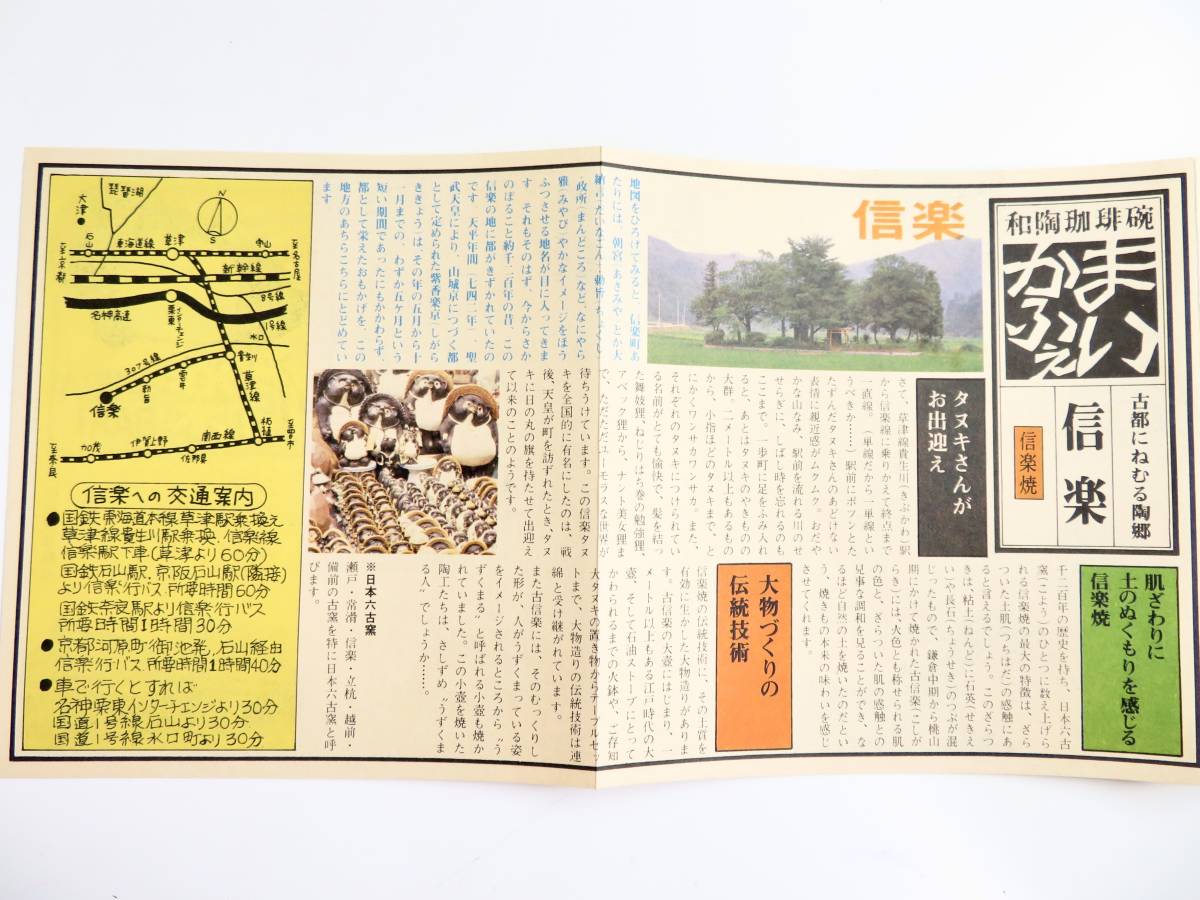 和陶珈琲碗
まいかっふぇ
古都にねむる陶郷
信楽
信楽焼
信楽
地図をひろげてみると、信楽町あ
たりには、朝宮(あさみや)とか大
納言(だいなごん)、勅旨(ちょくし)
・政所(まんどころ)など、なにやら
雅(みやび)やかなイメージをほう
ふつさせる地名が目に入ってきま
す それもそのはず、今からさか
のぼること約千二百年の昔、この
信楽の地に都がきずかれていたの
です 天平年間(七四二年)、聖
武天皇により、山城京につづく都
として定められた紫香楽京(しがら
ききょう)は、その年の五月から十
一月までの、わずか五ヶ月という
短い期間であったにもかかわらず、
都として栄えたおもかげを、この
地方のあちらこちらにとどめてい
ます
タヌキさんが
お出迎え
さて、草津線貴生川(きぶかわ)駅
から信楽線に乗りかえて終点まで
一直線。(単線だから一単線とい
うべきか……)駅前にポツンとた
たずんだタヌキさんのあどけない
表情に親近感がムクムク。おだや
かな山なみ、駅前を流れる川のせ
せらぎに、しばし時を忘れるのも
ここまで。一歩町に足をふみ入れ
ると、あとはタヌキのやきものの
大群。二メートル以上もあるもの
から、小指ほどのタヌキまで、と
にかくワンサカワンサカ。また、
それぞれのタヌキにつけられてい
る名前がとても愉快で、髪を結っ
た舞妓狸、ねじりはち巻の勉強狸、
アベック狸から、ナント美女狸ま
で、ただただユーモラスな世界が
待ちうけています。この信楽タヌ
キを全国的に有名にしたのは、戦
後、天皇が町を訪ずれたとき、タヌ
キに日の丸の旗を持たせて出迎え
て以来のことのようです。
肌ざわりに
土のぬくもりを感じる
信楽焼
千二百年の歴史を持ち、日本六古
窯(こよう)のひとつに数え上げら
れる信楽焼の最大の特徴は、ざら
ついた土肌(つちはだ)の感触にあ
ると言えるでしょう。このざらつ
きは粘土(ねんど)に石英(せきえ
い)や長石(ちょうせき)のつぶが混
じったもので、鎌倉中期から桃山
期にかけて焼かれた古信楽(こしが
らき)には、火色とも称せられる肌
の色と、ざらついた肌の感触との
見事な調和を見ることができ、な
るほど自然の土を焼いたのだとい
う、焼きもの本来の味わいを感じ
させてくれます。
大物づくりの
伝統技術
信楽焼の伝統技術に、その土質を
有効に生かした大物造りがありま
す。古信楽の大壺にはじまり、一
メートル以上もある江戸時代の大
壺、そして石油ストーブにとって
かわられるまでの火鉢や、ご存知
大タヌキの置き物からテーブルセッ
トまで、大物造りの伝統技術は連
綿と受け継がれています。
また古信楽には、そのむっくりし
た形が、人がうずくまっている姿
をイメージされるところから〝う
ずくまる〟と呼ばれる小壺も焼か
れていました。この小壺を焼いた
陶工たちは、さしずめ〝うずくま
る人〟でしょうか……。
※日本六古窯
瀬戸・常滑・信楽・立杭・越前・
備前の古窯を特に日本六古窯と呼
びます。
琵琶湖
大津
石山
東海道線
草津
守山
至京都
至名古屋
新幹線
8号線
1号線
名神高速
栗東
インターチェンジ
水口
307号線
貴生川
雲井
勅旨
信楽
草津線
柘植
関西線
伊賀上野
佐那具
加茂
至奈良
N
S
信楽への交通案内
●国鉄東海道本線草津駅乗換え
草津線貴生川駅乗換、信楽線
信楽駅下車(草津より60分)
国鉄石山駅、京阪石山駅(隣接)
より信楽行バス、所要時間60分
国鉄奈良駅より信楽行バス
所要時間1時間30分
●京都河原町御池発、石山経由
信楽行バス、所要時間1時間40分
●車で行くとすれば
名神栗東インターチェンジより30分
国道1号線石山より30分
国道1号線水口町より30分